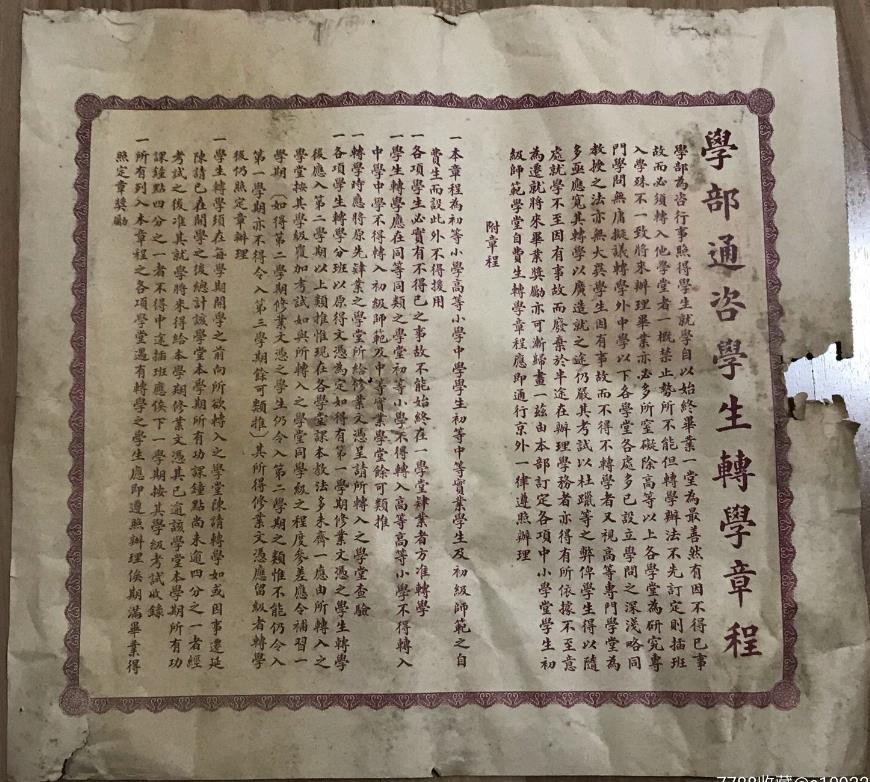 學部通咨學生轉學章程
學部為咨行事照得學生就學自以始終畢業一堂為最善然有因不得已事
故而必須轉入他學堂者一概禁止勢所不能但轉學辦法不先訂定則插班
入學殊不一致將來辦理畢業亦必多所窒礙除高等以上各學堂為研究專
門學問無庸擬議轉學外中學以下各學堂各處多已設立學問之深淺略同
教授之法亦無大異學生因有事故而不得不轉學者又視高等專門學堂為
多亟應寬其轉學以廣造就之途仍嚴其考試以杜躐等之弊俾學生得以隨
處就學不至因有事故而廢棄於半途在辦理學務者亦得有所依據不至意
為遷就將來畢業獎勵亦可漸歸畫一茲由本部訂定各項中小學堂學生初
級師範學堂自費生轉學章程應即通行京外一律遵照辦理
附章程
一本章程為初等小學高等小學中學學生初等中等實業學生及初級師範之自
費生而設此外不得援用
一各項學生必實有不得已之事故不能始終在一學堂肄業者方准轉學
一學生轉學應在同等同類之學堂初等小學不得轉入高等高等小學不得轉入
中學中學不得轉入初級師範及中等實業學堂餘可類推
一轉學時應將原先肄業之學堂所給修業文憑呈請所轉入之學堂查驗
一各項學生轉學分班以原得文憑為定如得有第一學期修業文憑之學生轉學
後應入第二學期以上類推惟現在各學堂課本教法多未齊一應由所轉入之
學堂按其學級覆加考試如與所轉入之學堂同學級之程度參差應令補習一
學期（如得第二學期修業文憑之學生仍令入第二學期之類惟不能仍令入
第一學期亦不得令入第三學期餘可類推）其所得修業文憑應留級者轉學
後仍照定章辦理
一學生轉學須在每學期開學之前向所欲轉入之學堂陳請轉學如或因事遷延
陳請已在開學之後總計該學堂本學期所有功課鐘點尚未逾四分之一者經
考試之後准其就學將來得給本學期修業文憑其已逾該學堂本學期所有功
課鐘點四分之一者不得中途插班應俟下一學期按其學級考試收錄
一所有列入本章程之各項學堂遇有轉學之學生應即遵照辦理俟期滿畢業得
照定章獎勵